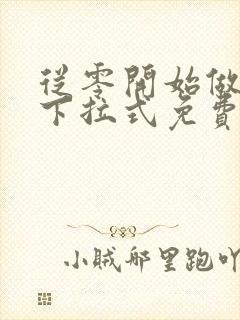 從零開始做
下拉式免費
小賊那里跑吖